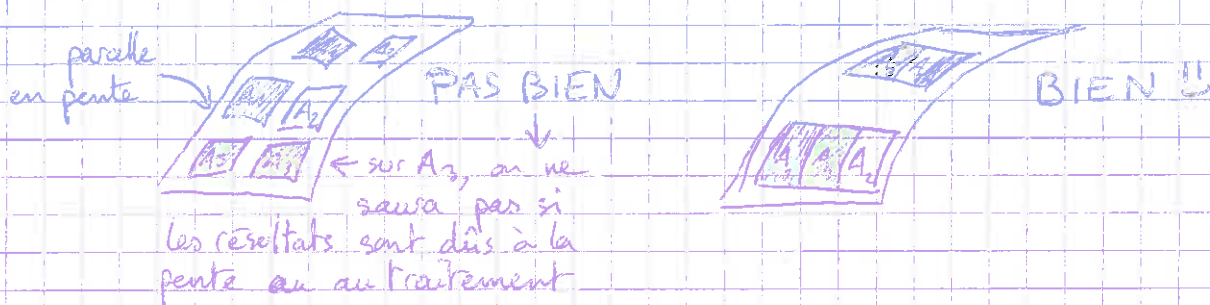 parcelle
en pente
PAS BIEN
A2
A3
← sur A3, on ne
saura pas si
les résultats sont dûs à la
pente ou au traitement
BIEN !!
A2